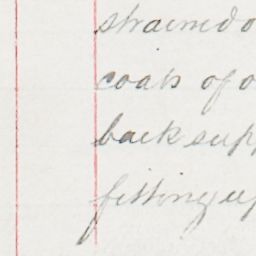 strained o
coats of o
back supp
fitting up